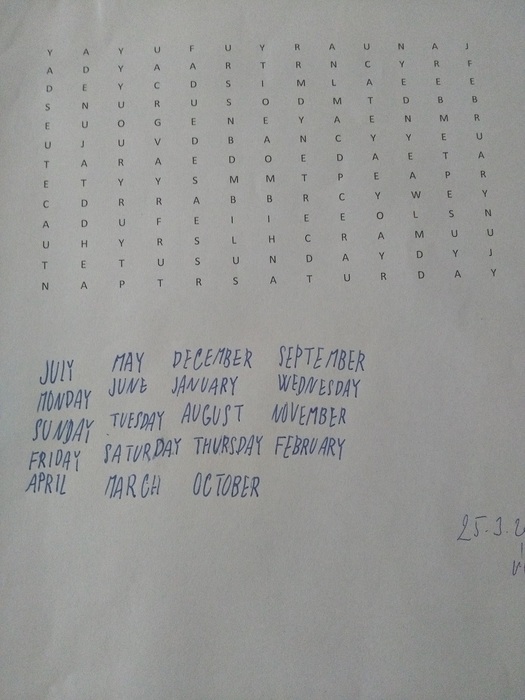 Y A Y U F U Y R A U N A J
A D Y A A R T R N C Y R F
D E Y C D S I M L A E E E
S N U R U S O D M T D B B
E U O G E N E Y A E N M R
U J U V D B A N C Y Y E U
T A R A E D O E D A E T A
E T Y Y S M M T P E A P R
C D R R A B B R C Y W E Y
A D U F E I I E E O L S N
U H Y R S L H C R A M U U
T E T U S U N D A Y D Y J
N A P T R S A T U R D A Y
JULY MAY DECEMBER SEPTEMBER
MONDAY JUNE JANUARY WEDNESDAY
SUNDAY TUESDAY AUGUST NOVEMBER
FRIDAY SATURDAY THURSDAY FEBRUARY
APRIL MARCH OCTOBER
25.3.2